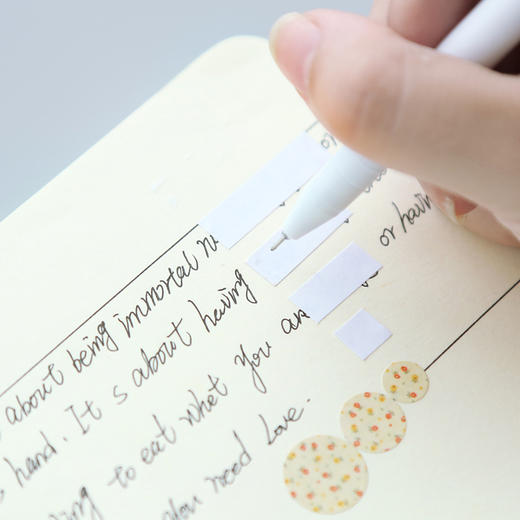 about being immortal or
hand. It s about having or having
to eat what you
you need Love.